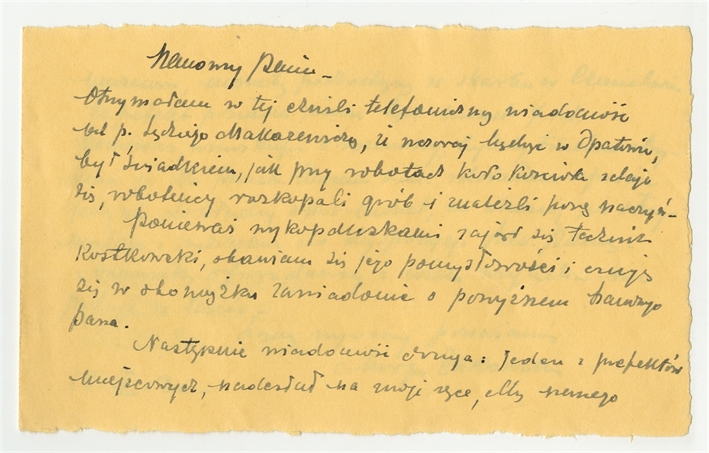 Szanowny Panie –
Otrzymałam w tej chwili telefoniczną wiadomość
od p. Sędziego Makarewicza, iż wczoraj będąc w Opatowie,
był świadkiem, jak przy robotach koło Kościoła zdaje
się, robotnicy rozkopali grób i znaleźli parę naczyń –
Ponieważ wykopaliskami zajął się
Kostkowski, obawiam się jego pomysłowości i czuję
się w obowiązku zawiadomić o powyższem Szanownego
Pana.
Następnie wiadomość druga: jeden z prefektów
miejscowych, nadesłał na moje ręce, dla